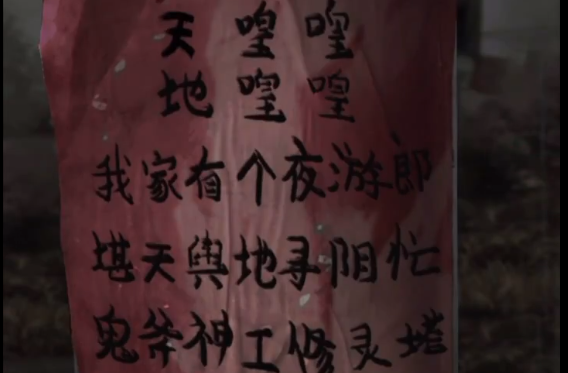 天喤喤
地喤喤
我家有个夜游郎
堪天舆地寻阳忙
鬼斧神工修灵